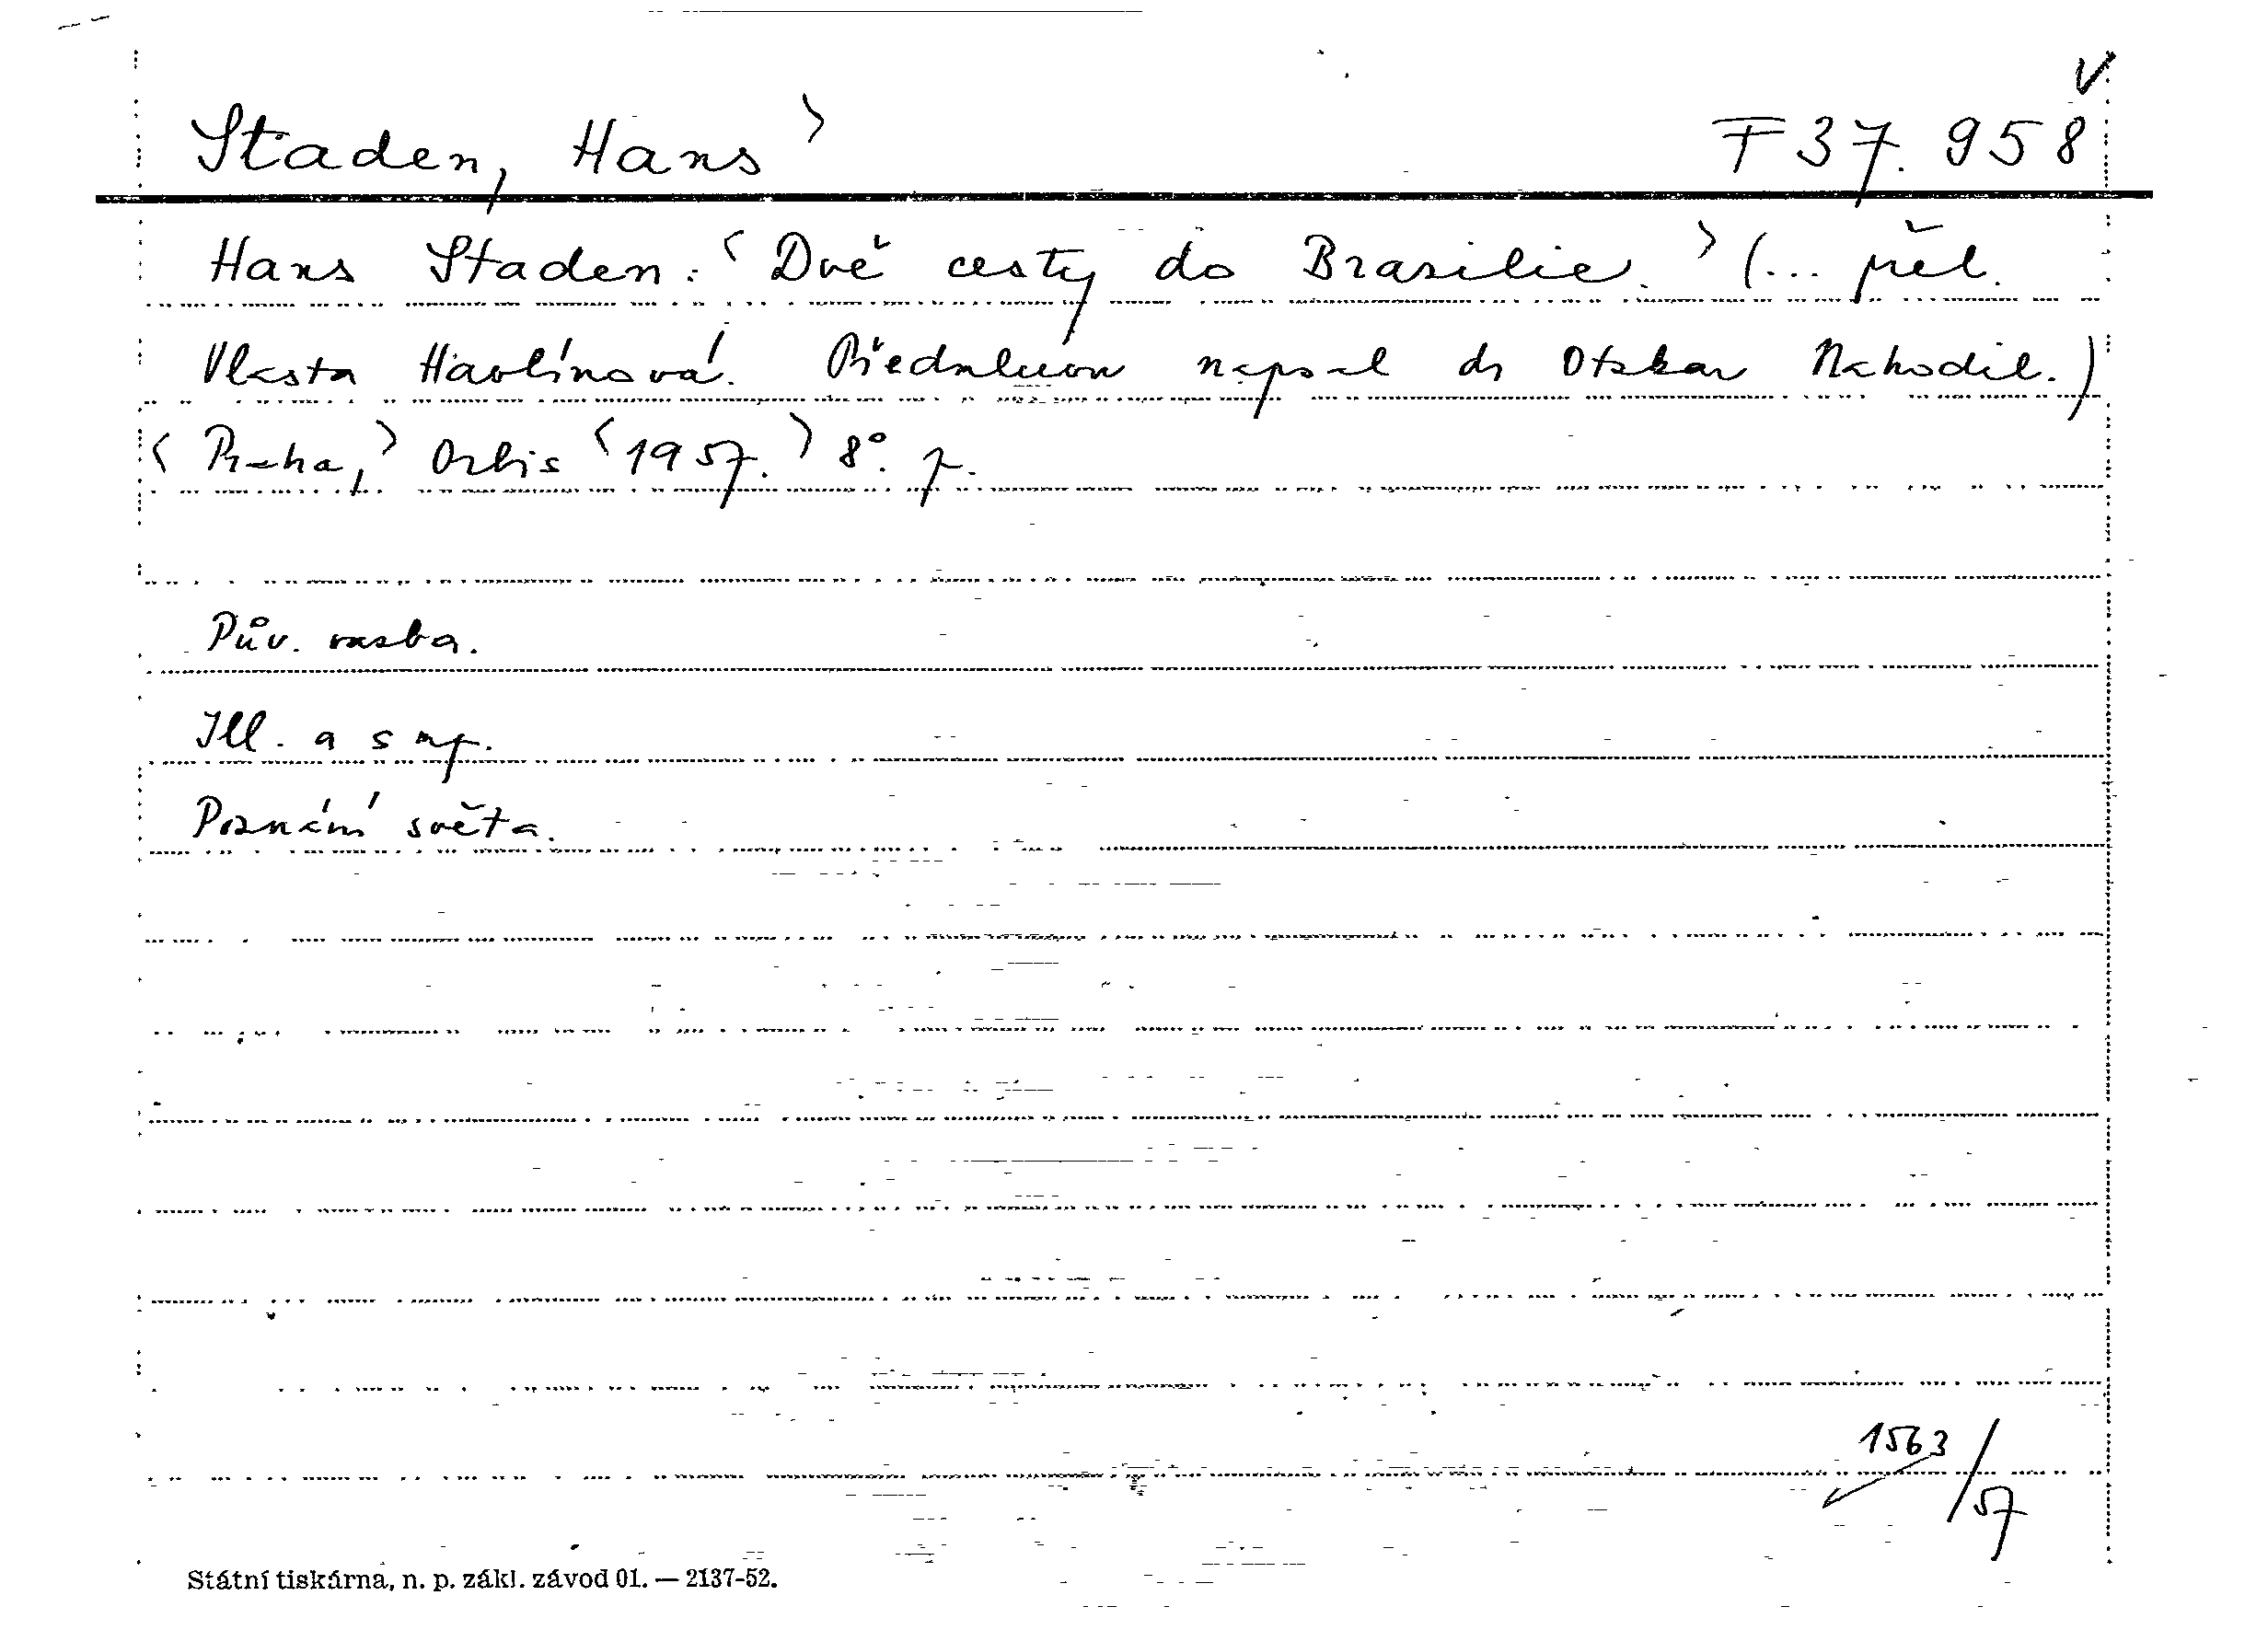 V
Staden, Hans > F 37.958
Hans Staden: < Dvě cesty do Brasilie. > (... přel.
Vlasta Havlínová. Předmluvu napsal dr Otakar Nahodil.)
< Praha, > Orbis < 1957. > 8°. p.
Pův. vazba.
Ill. a s mp.
Poznání světa.
1563/57
Státní tiskárna, n. p. zákl. závod 01. — 2137-52.